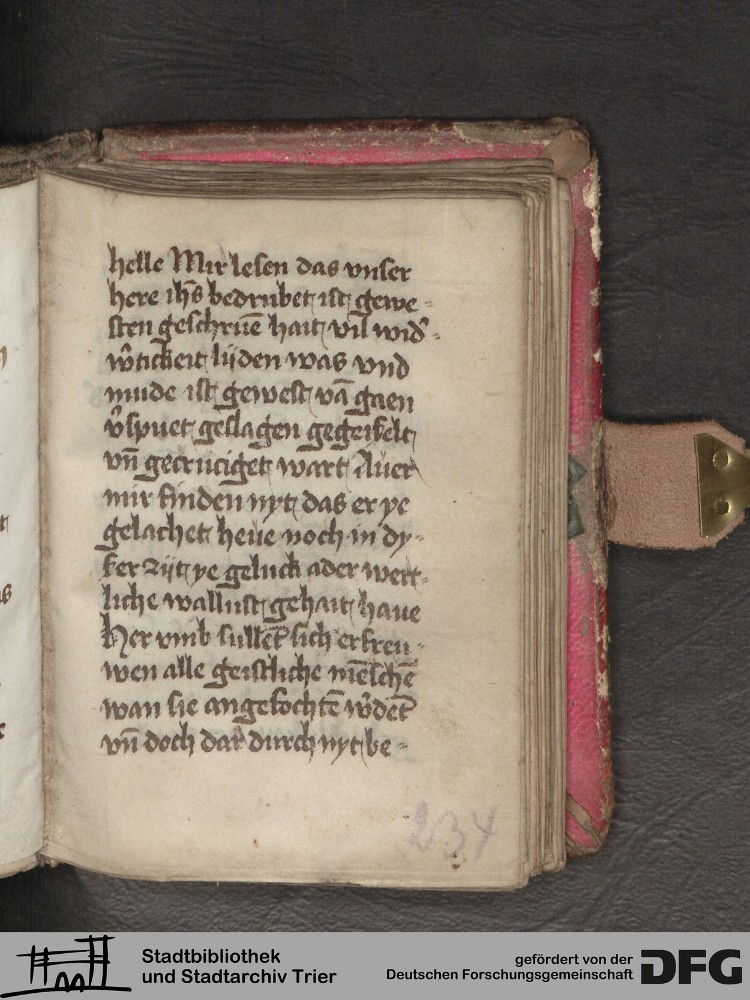 helle Mir lesen das vnser
here ihs̄ bedrubet ist gewe-
sten geschruē hait vil wid̾-
w̾tickeit lijden was vnd
mude ist gewest vā gaen
v̾spuet geslagen gegeiselt
vn̄ gecruciget wart Auer
mir finden nyt das er ye
gelachet heue noch in dy-
ser zijt ye geluck ader wert-
liche wallust gehait haue
Her vmb sullēt sich erfreu-
wen alle geistliche mēschē
wan sie angefochtē w̾dēt
vn̄ doch dar durch nyt be-
234
Stadtbibliothek
und Stadtarchiv Trier
gefördert von der
Deutschen Forschungsgemeinschaft
DFG